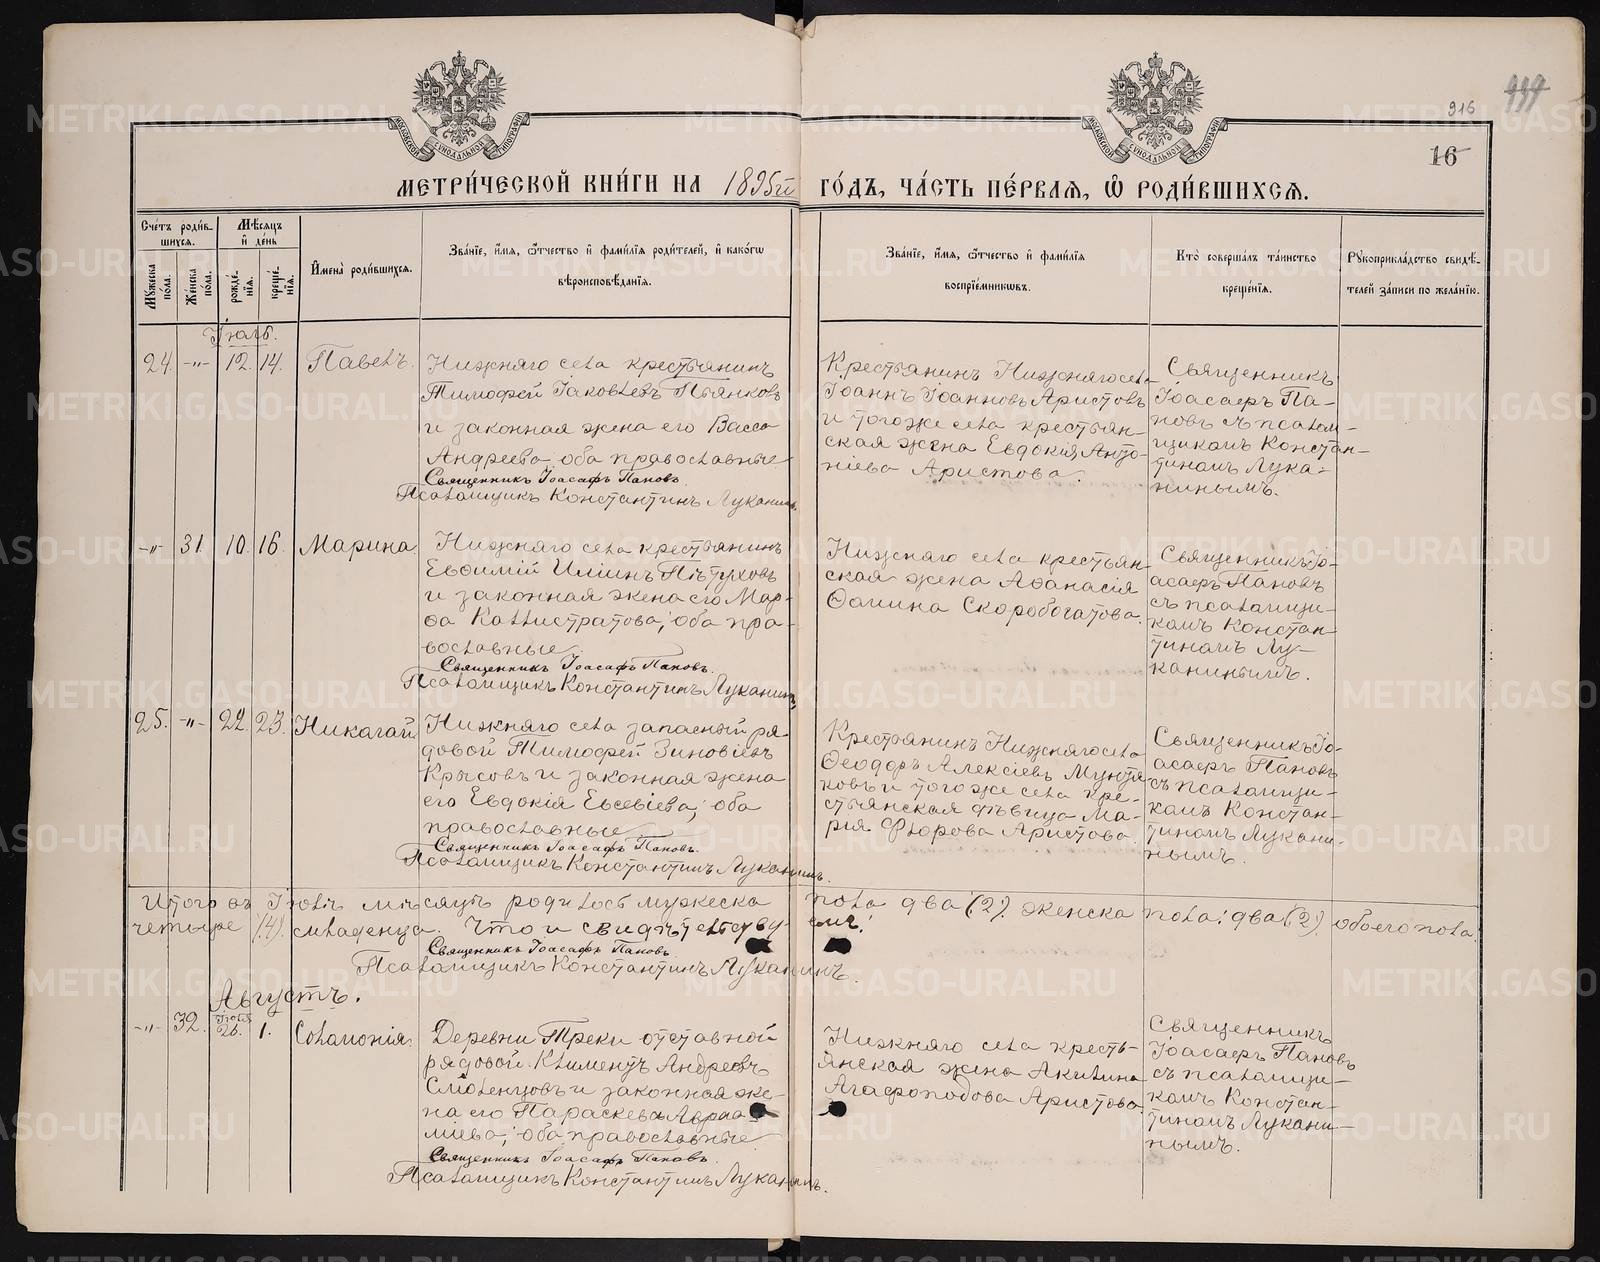 916
16
МЕТРИ́ЧЕСКОЙ КНИ́ГИ НА 1895й ГО́ДЪ, ЧА́СТЬ ПЕ́РВАЯ, Ѡ РОДИ́ВШИХСЯ.
Сче́тъ роди́в-
шихся.
Мѣ́сяцъ
и де́нь
Му́жеска по́ла.
Же́нска по́ла.
рожде́-
нїя.
креще́-
нїя.
Имена̀ роди́вшихся.
Зва́нїе, и́мя, ѻ́тчество и фами́лїя роди́телей, и како́гѡ
вѣроисповѣ́данїя.
Зва́нїе, и́мя, ѻ́тчество и фами́лїя
воспрїе́мниковъ.
Кто̀ соверша́лъ та́инство
креще́нїя.
Рукоприкла́дство свидѣ́-
телей за́писи по жела́нїю.
Іюль.
24. -"- 12. 14. Павелъ.
Нижняго села крестьянинъ
Тимофей Іаковлевъ Пьянковъ
и законная жена его Васса
Андреева оба православные
Священникъ Іоасафъ Пановъ.
Псаломщикъ Константинъ Луканинъ.
Крестьянинъ Нижняго села
Іоаннъ Іоанновъ Аристовъ
и того же села крестьян-
ская жена Евдокія Анто-
ніева Аристова.
Священникъ
Іоасафъ Па-
новъ съ псалом-
щикомъ Констан-
тиномъ Лука-
нинымъ.
-"- 31. 10. 16. Марина.
Нижняго села крестьянинъ
Евѳимій Иліинъ Пѣтуховъ
и законная жена его Мар-
ѳа Каллистратова; оба пра-
вославные
Священникъ Іоасафъ Пановъ.
Псаломщикъ Константинъ Луканинъ
Нижняго села крестьян-
ская жена Аѳанасія
Ѳомина Скоробогатова.
Священникъ Іо-
асафъ Пановъ
съ псаломщи-
комъ Констан-
тиномъ Лу-
канинымъ.
25. -"- 22. 23. Николай.
Нижняго села запасный ря-
довой Тимофей Зиновіевъ
Крысовъ и законная жена
его Евдокія Евсевіева; оба
православные
Священникъ Іоасафъ Пановъ.
Псаломщикъ Константинъ Луканинъ.
Крестьянинъ Нижняго села
Ѳеодоръ Алексіевъ Мунтя-
ковъ и того же села кре-
стьянская дѣвица Ма-
рія Флорова Аристова.
Священникъ Іо-
асафъ Пановъ
съ псаломщи-
комъ Констан-
тиномъ Лукани-
нымъ.
Итого въ Іюлѣ мѣсяцѣ родилось мужеска пола два (2). женска пола: два (2). обоего пола.
четыре (4). младенца. Что и свидѣтельству-емъ:
Священникъ Іоасафъ Пановъ
Псаломщикъ Константинъ Луканинъ.
Августъ.
-"- 32. Іюля 26. 1. Соломонія.
Деревни Треки отставной
рядовой Климентъ Андреевъ
Смоленцовъ и законная же-
на его Параскева Авраа-
міева; оба православные
Священникъ Іоасафъ Пановъ.
Псаломщикъ Константинъ Луканинъ.
Нижняго села кресть-
янская жена Акилина
Агафоподова Аристова.
Священникъ
Іоасафъ Пановъ
съ псаломщи-
комъ Констан-
тиномъ Лукани-
нымъ.